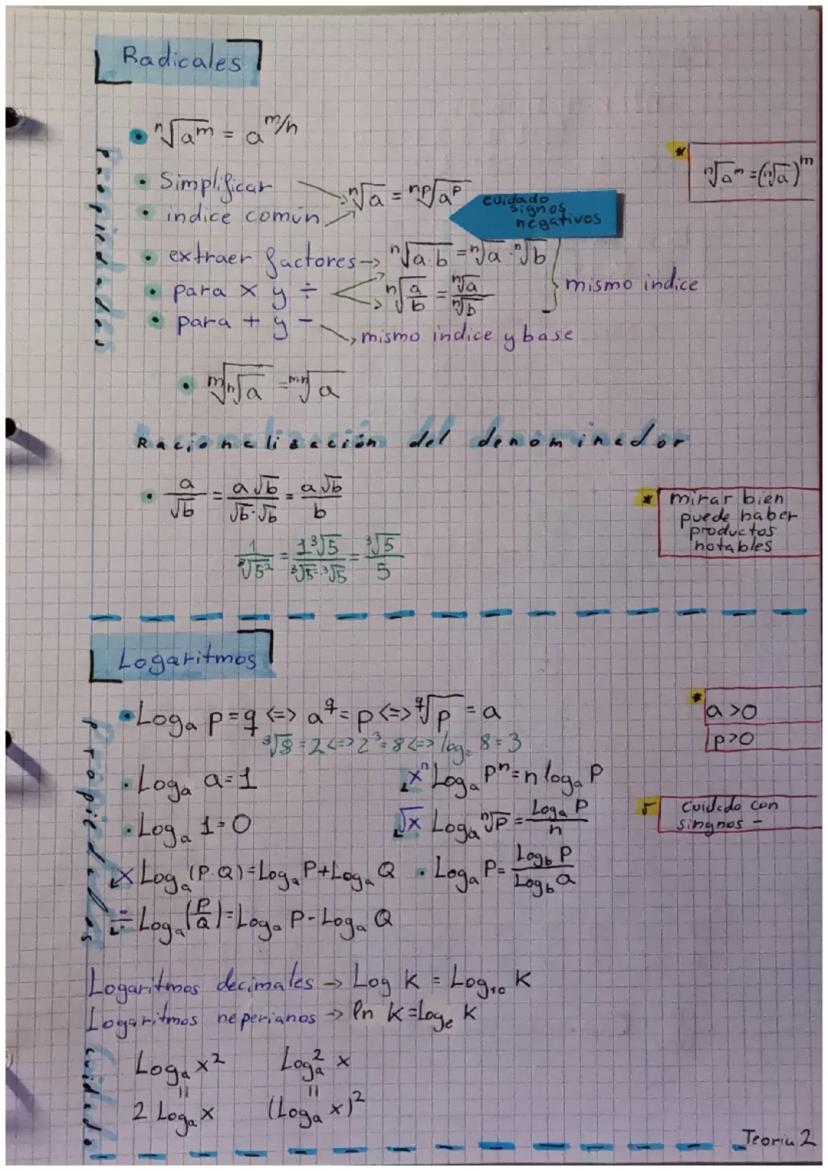 Radicales
Propiedades
• ⁿ√aᵐ = a^m/n
* ⁿ√aᵐ = (ⁿ√a)ᵐ
• Simplificar
• indice común → ⁿ√a = ⁿᵖ√aᵖ
cuidado
signos
negativos
• extraer factores → ⁿ√a·b = ⁿ√a · ⁿ√b
• para x y ÷ → ⁿ√(a/b) = ⁿ√a / ⁿ√b } mismo indice
• para + y - → mismo indice y base
• ᵐ√ⁿ√a = ᵐⁿ√a
Racionalización del denominador
• a/√b = a√b/√b·√b = a√b/b
* mirar bien
puede haber
productos
notables
1/³√5² = 1³√5/³√5²·³√5 = ³√5/5
Logaritmos
Propiedades
• Logₐ p = q <=> a^q = p <=> ^q√p = a
³√8 = 2 <=> 2³ = 8 <=> log₂ 8 = 3
* a >0
p>0
• Logₐ a = 1
xⁿ Logₐ Pⁿ = n logₐ P
• Logₐ 1 = 0
√x Logₐ ⁿ√P = Logₐ P/n
Cuidado con
singnos -
x Logₐ (P·Q) = Logₐ P + Logₐ Q • Logₐ P = Log_b P/Log_b a
÷ Logₐ (P/Q) = Logₐ P - Logₐ Q
Logaritmos decimales → Log K = Log₁₀ K
Logaritmos neperianos → ln K = logₑ K
Cuidado
Logₐ x² Log²ₐ x
= =
2 Logₐ x (Logₐ x)²
Teoria 2